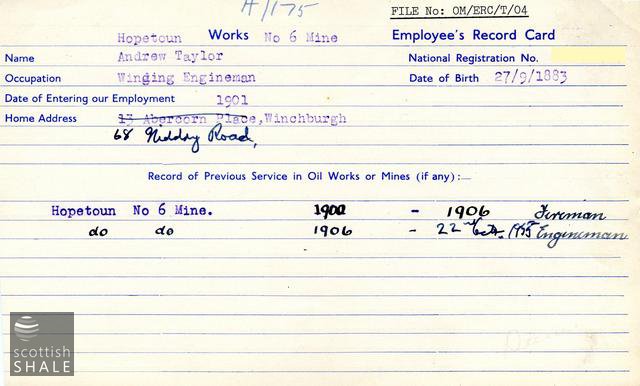 A/175
FILE No: OM/ERC/T/04
Hopetoun Works No 6 Mine Employee's Record Card
Name Andrew Taylor National Registration No.
Occupation Winging Engineman Date of Birth 27/9/1883
Date of Entering our Employment 1901
Home Address 13 Abercorn Place, Winchburgh
68 Niddry Road,
Record of Previous Service in Oil Works or Mines (if any):—
Hopetoun No 6 Mine. - 1906 Fireman
do do 1906 - 22nd Oct. 1955 Engineman
scottish
SHALE